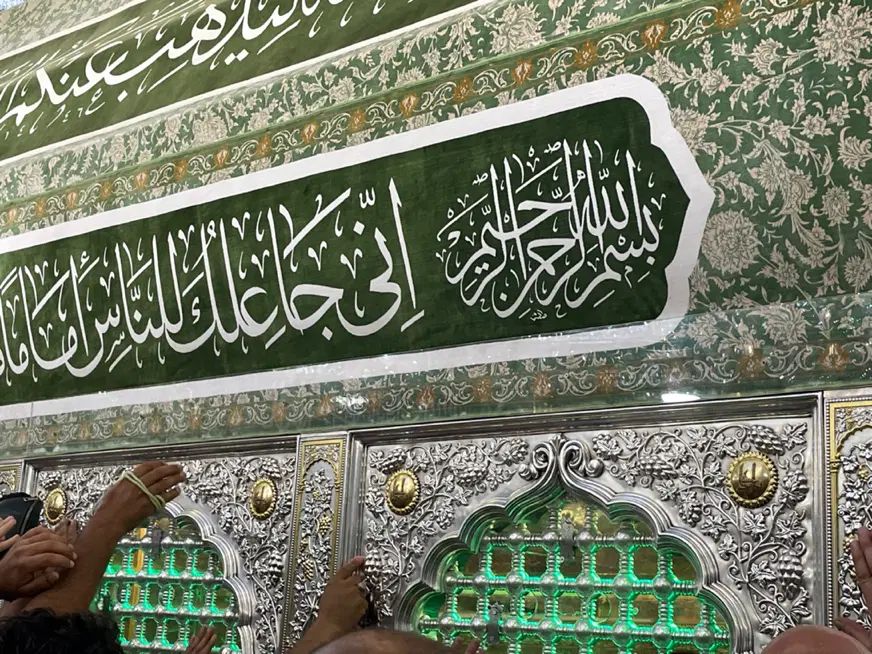 لِيُذْهِبَ عَنْكُمُ
بِسْمِ اللهِ الرَّحْمنِ الرَّحِيمِ إِنّي جَاعِلُكَ لِلنَّاسِ إِمَامًا